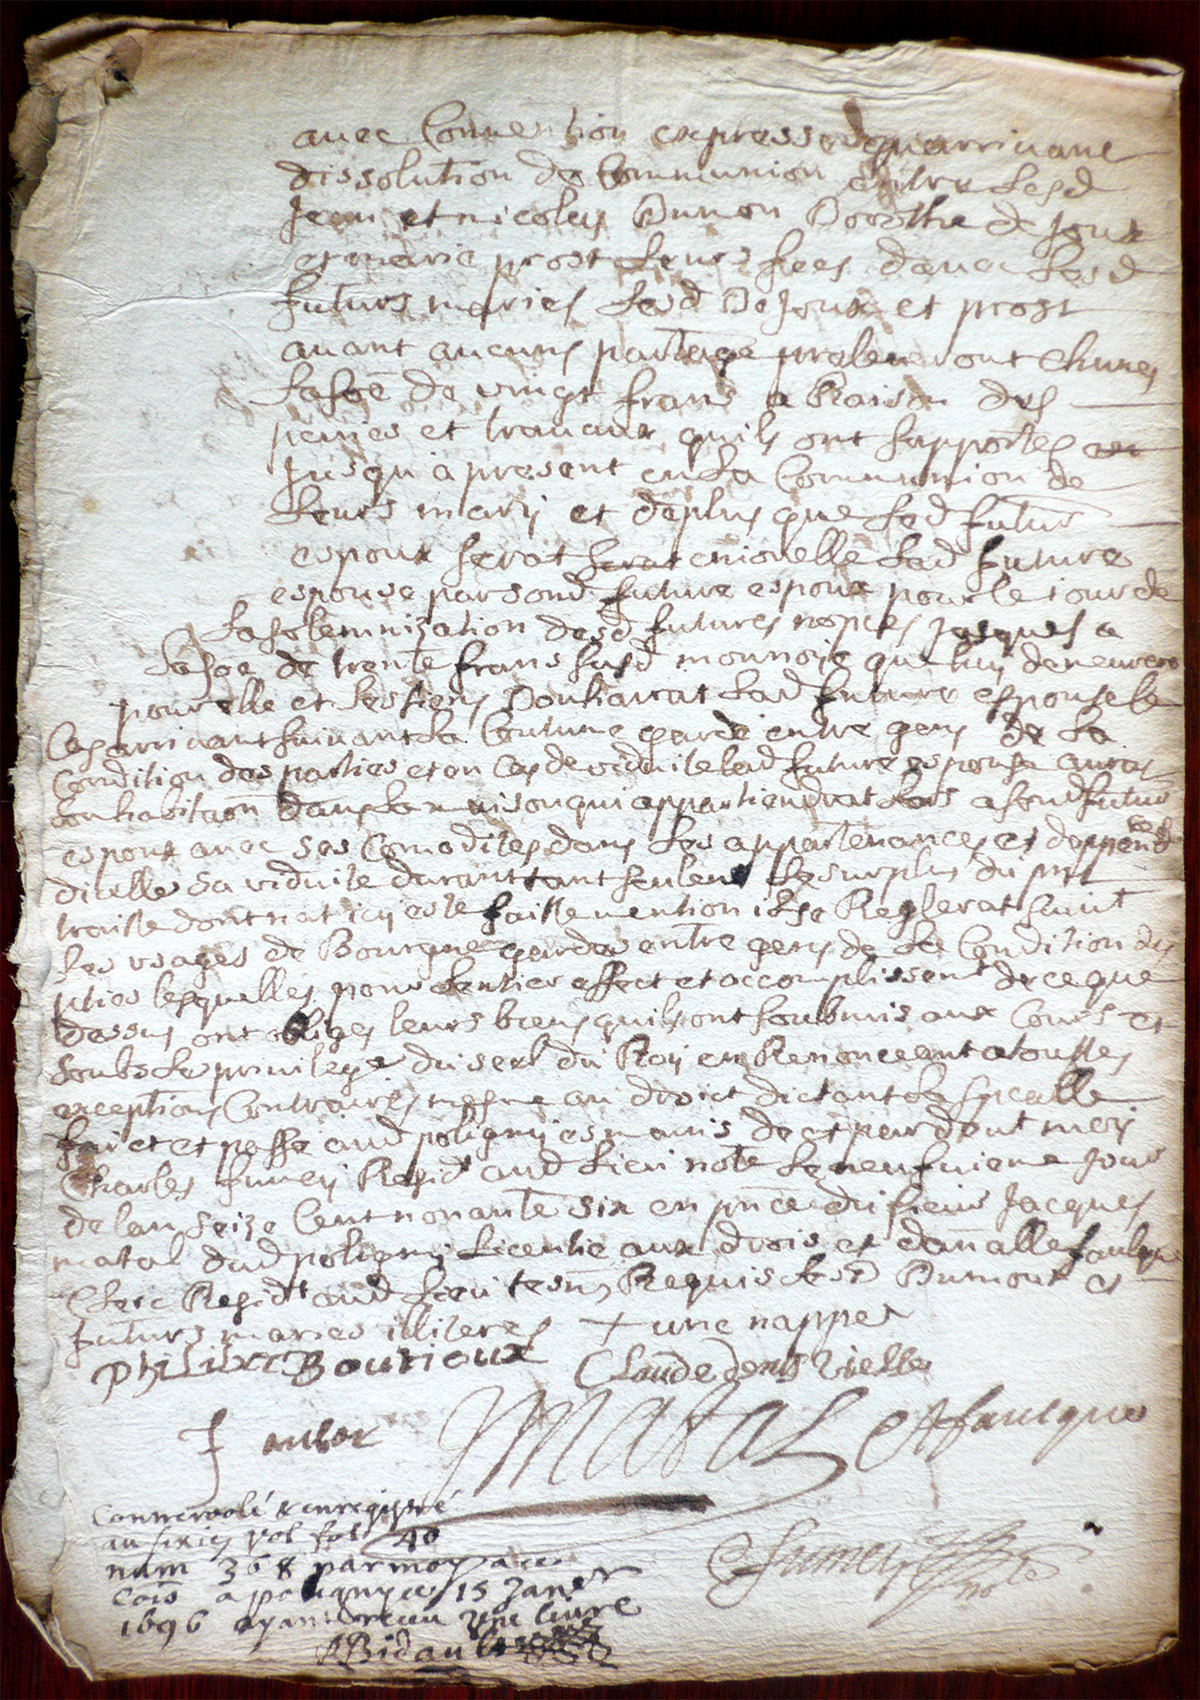 avec Convention expresse qu arrivant
dissolution de Communion entre lesd
Jean et nicolas Dumon Dorothe de Joux
et marie prost leurs fees davec lesd
futurs maries lesd De Joux et prost
avant aucung partage preleveront chunes
la soe de vingt frans a Raison des
peines et travaux quils ont supportes
jusqu a present en la Communion de
leurs marys et deplus que led futur
espoux serat enjouelle lad future
espouse par sond future espoux pour le jour de
la solemnization desd futures nopces jusques a
la soe de trente frans susd monnoie que luy demeurera
pour elle et les siens Douhairat lad future espouse le
Cas arrivant suivant la Coutume garde entre gens de la
Condition des parties et en Cas de viduite lad future espouse aurat
son habitaon dans la maison qui appartiendrat lors a sond futur
espoux avec ses Comodites dans les appartenances et deppend
dicelle sa viduite durant tant seulem le surplus du pnt
traitte dont nat icy este faitte mention il se Reglerat suivt
les usages de Bourgne gardes entre gens de la Condition des
pties lesquelles pour lentier effect et accomplissent de ce que
dessus ont obliges leurs biens quils ont soubmis aux Cours et
soubs le privilege du seel du Roy en Renonceant a touttes
exceptions Contraires mesme au droict dictant la speialle
faict et passe aud poligny es mains de et pardevt moy
Charles fumey Resid aud lieu note le neufvieme Jour
de lan seize Cent nonante six en pnce du sieur Jacques
matal dud poligny Licentie aux drois et dan alle faulque
Clerc Residt aud lieu tesms Requis lesd Dumont et
futurs maries illiteres + une nappe
philibert Bourioux Claude denis Vielle
J matal A faucque
Conterolé & enregistré
au sixie vol fol 40
num 368 par moy au
Cois a poligny ce 15 Janer
1696 ayant receu une livre
Bidault
C fumey note